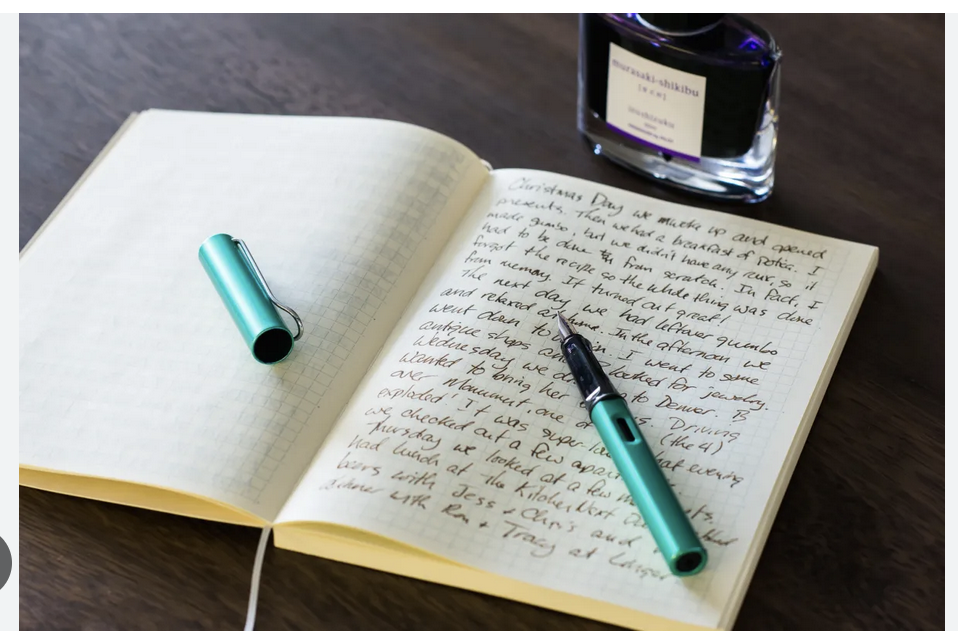 murasaki-shikibu
iroshizuku
Christmas Day we woke up and opened
presents. Then we had a breakfast of potica. I
made gumbo, but we didn't have any roux, so it
had to be done from scratch. In fact, I
forgot the recipe so the whole thing was done
from memory. It turned out great!
The next day we had leftover gumbo
and relaxed at home. In the afternoon we
went down to I went to some
antique shops and looked for jewelry.
Wednesday we to Denver. B
wanted to bring her Driving
over Monument, one of (the 41)
exploded! It was super that evening
we checked out a few
Thursday we looked at a few
had lunch at the Kitchen Next Door had
beers with Jess + Chris and
dinner with Ron + Tracy at